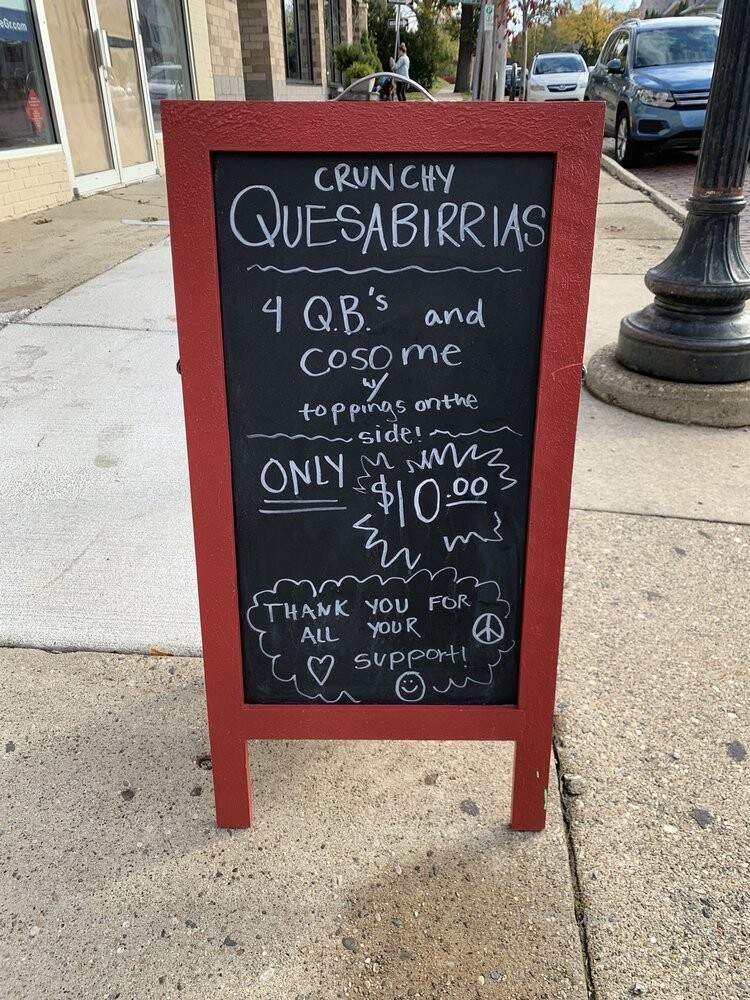 eGr.com
CRUNCHY
QUESABIRRIAS
4 Q.B.'s and
cosome
w/
toppings on the
side!
ONLY $10.00
THANK YOU FOR
ALL YOUR
support!